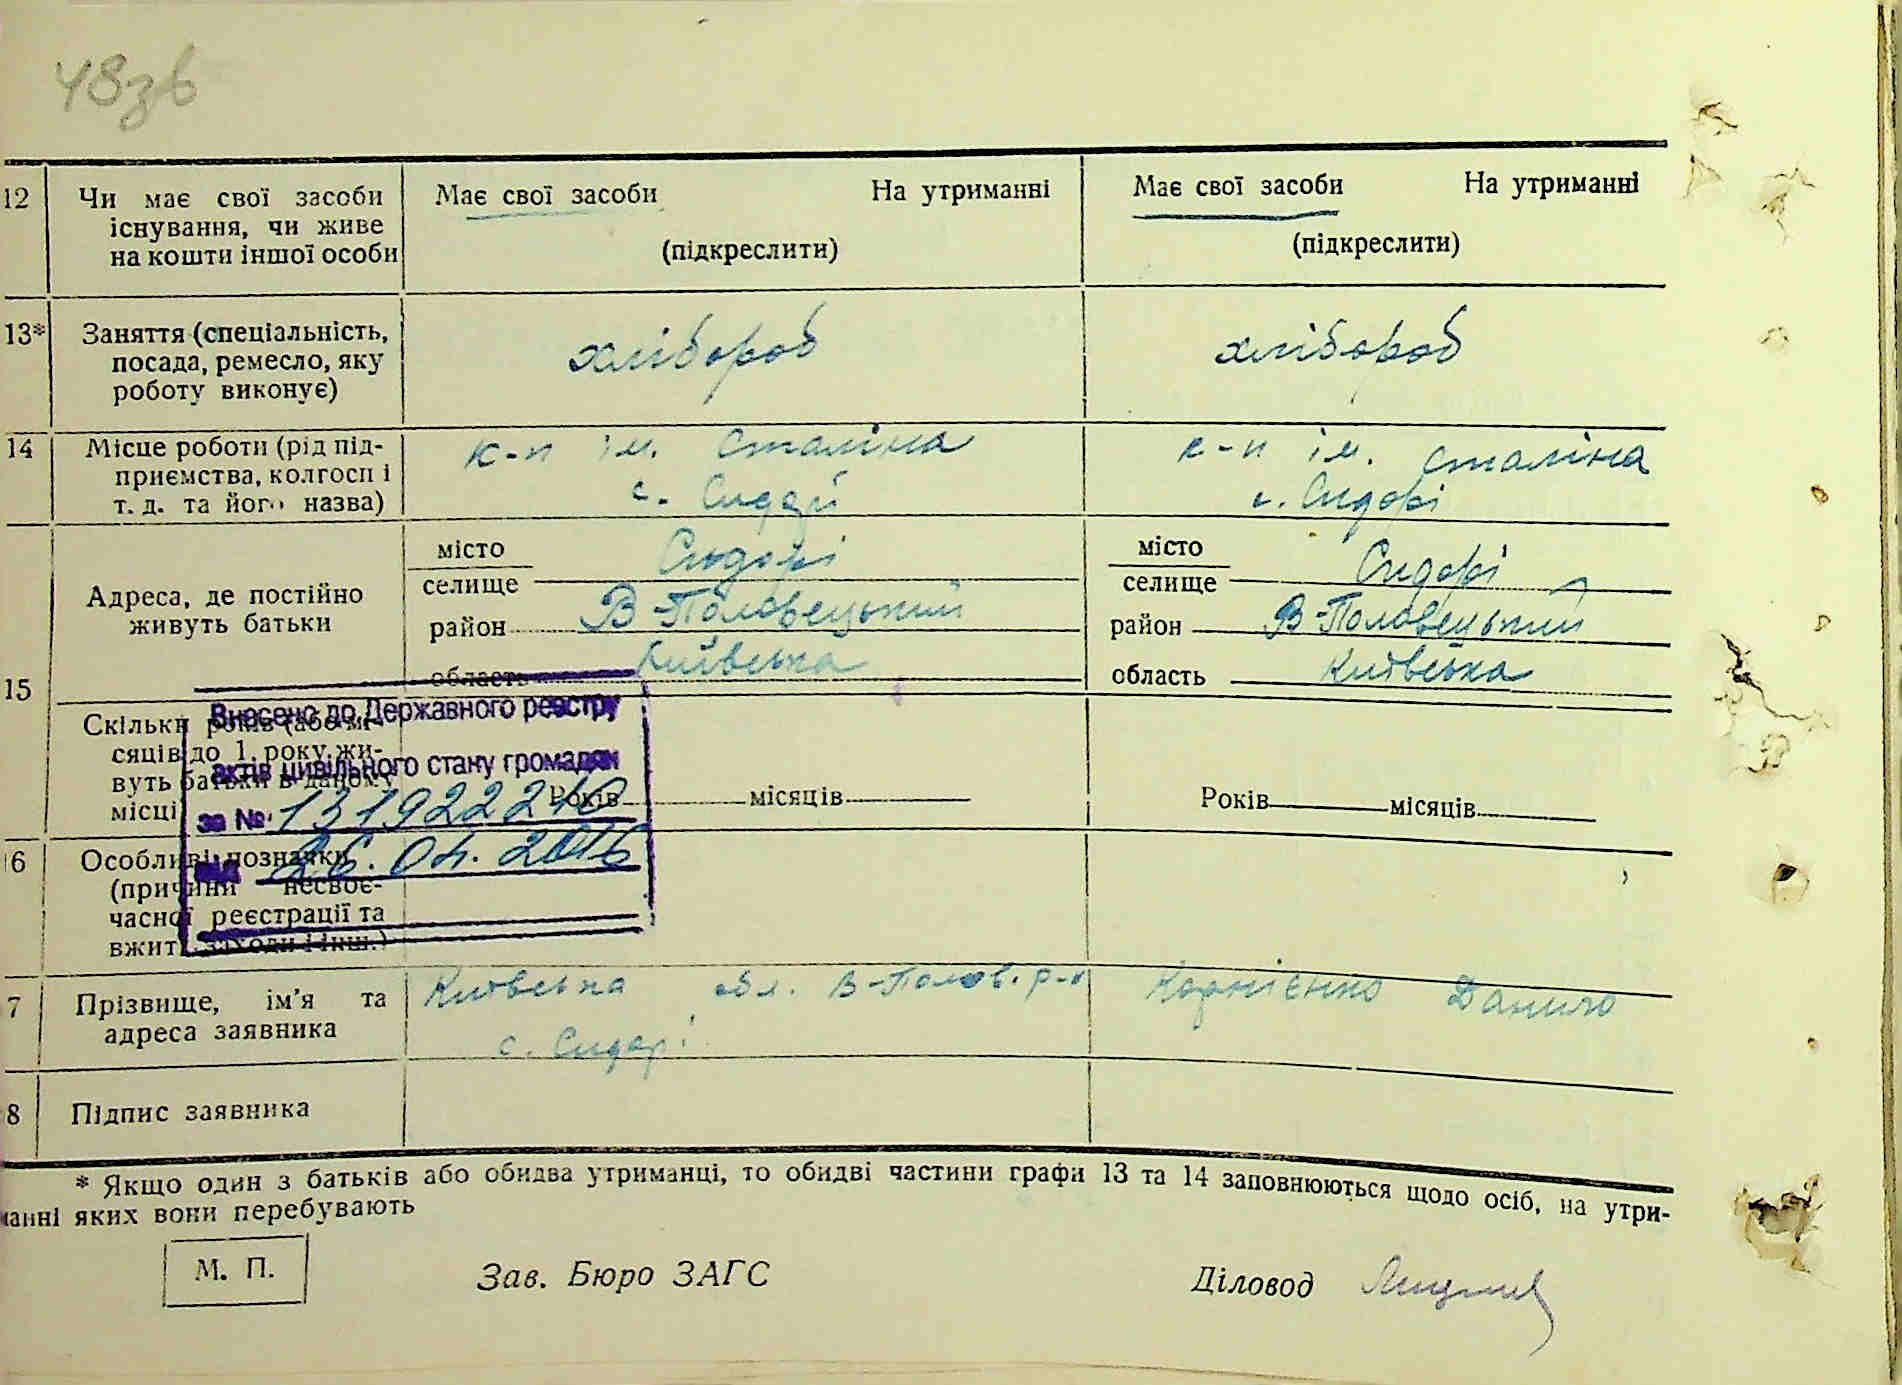 48зв
12 Чи має свої засоби існування, чи живе на кошти іншої особи
Має свої засоби На утриманні
(підкреслити)
Має свої засоби На утриманні
(підкреслити)
13* Заняття (спеціальність, посада, ремесло, яку роботу виконує)
хлібороб
хлібороб
14 Місце роботи (рід підприємства, колгосп і т. д. та його назва)
к-п ім. Сталіна
с. Сидорі
к-п ім. Сталіна
с. Сидорі
15 Адреса, де постійно живуть батьки
місто
селище Сидорі
район В-Половецький
область Київська
місто
селище Сидорі
район В-Половецький
область Київська
Скільки років (або місяців до 1 року живуть батьки в даному місці
Років місяців
Років місяців
Внесено до Державного реєстру
актів цивільного стану громадян
за №
26.04.2016
6 Особливі позначки (причини несвоєчасної реєстрації та вжиті заходи і інш.)
7 Прізвище, ім'я та адреса заявника
Київська обл. В-Полов. р-н
с. Сидорі
Корнієнко Данило
8 Підпис заявника
* Якщо один з батьків або обидва утриманці, то обидві частини графи 13 та 14 заповнюються щодо осіб, на утри-
манні яких вони перебувають
М. П.
Зав. Бюро ЗАГС
Діловод